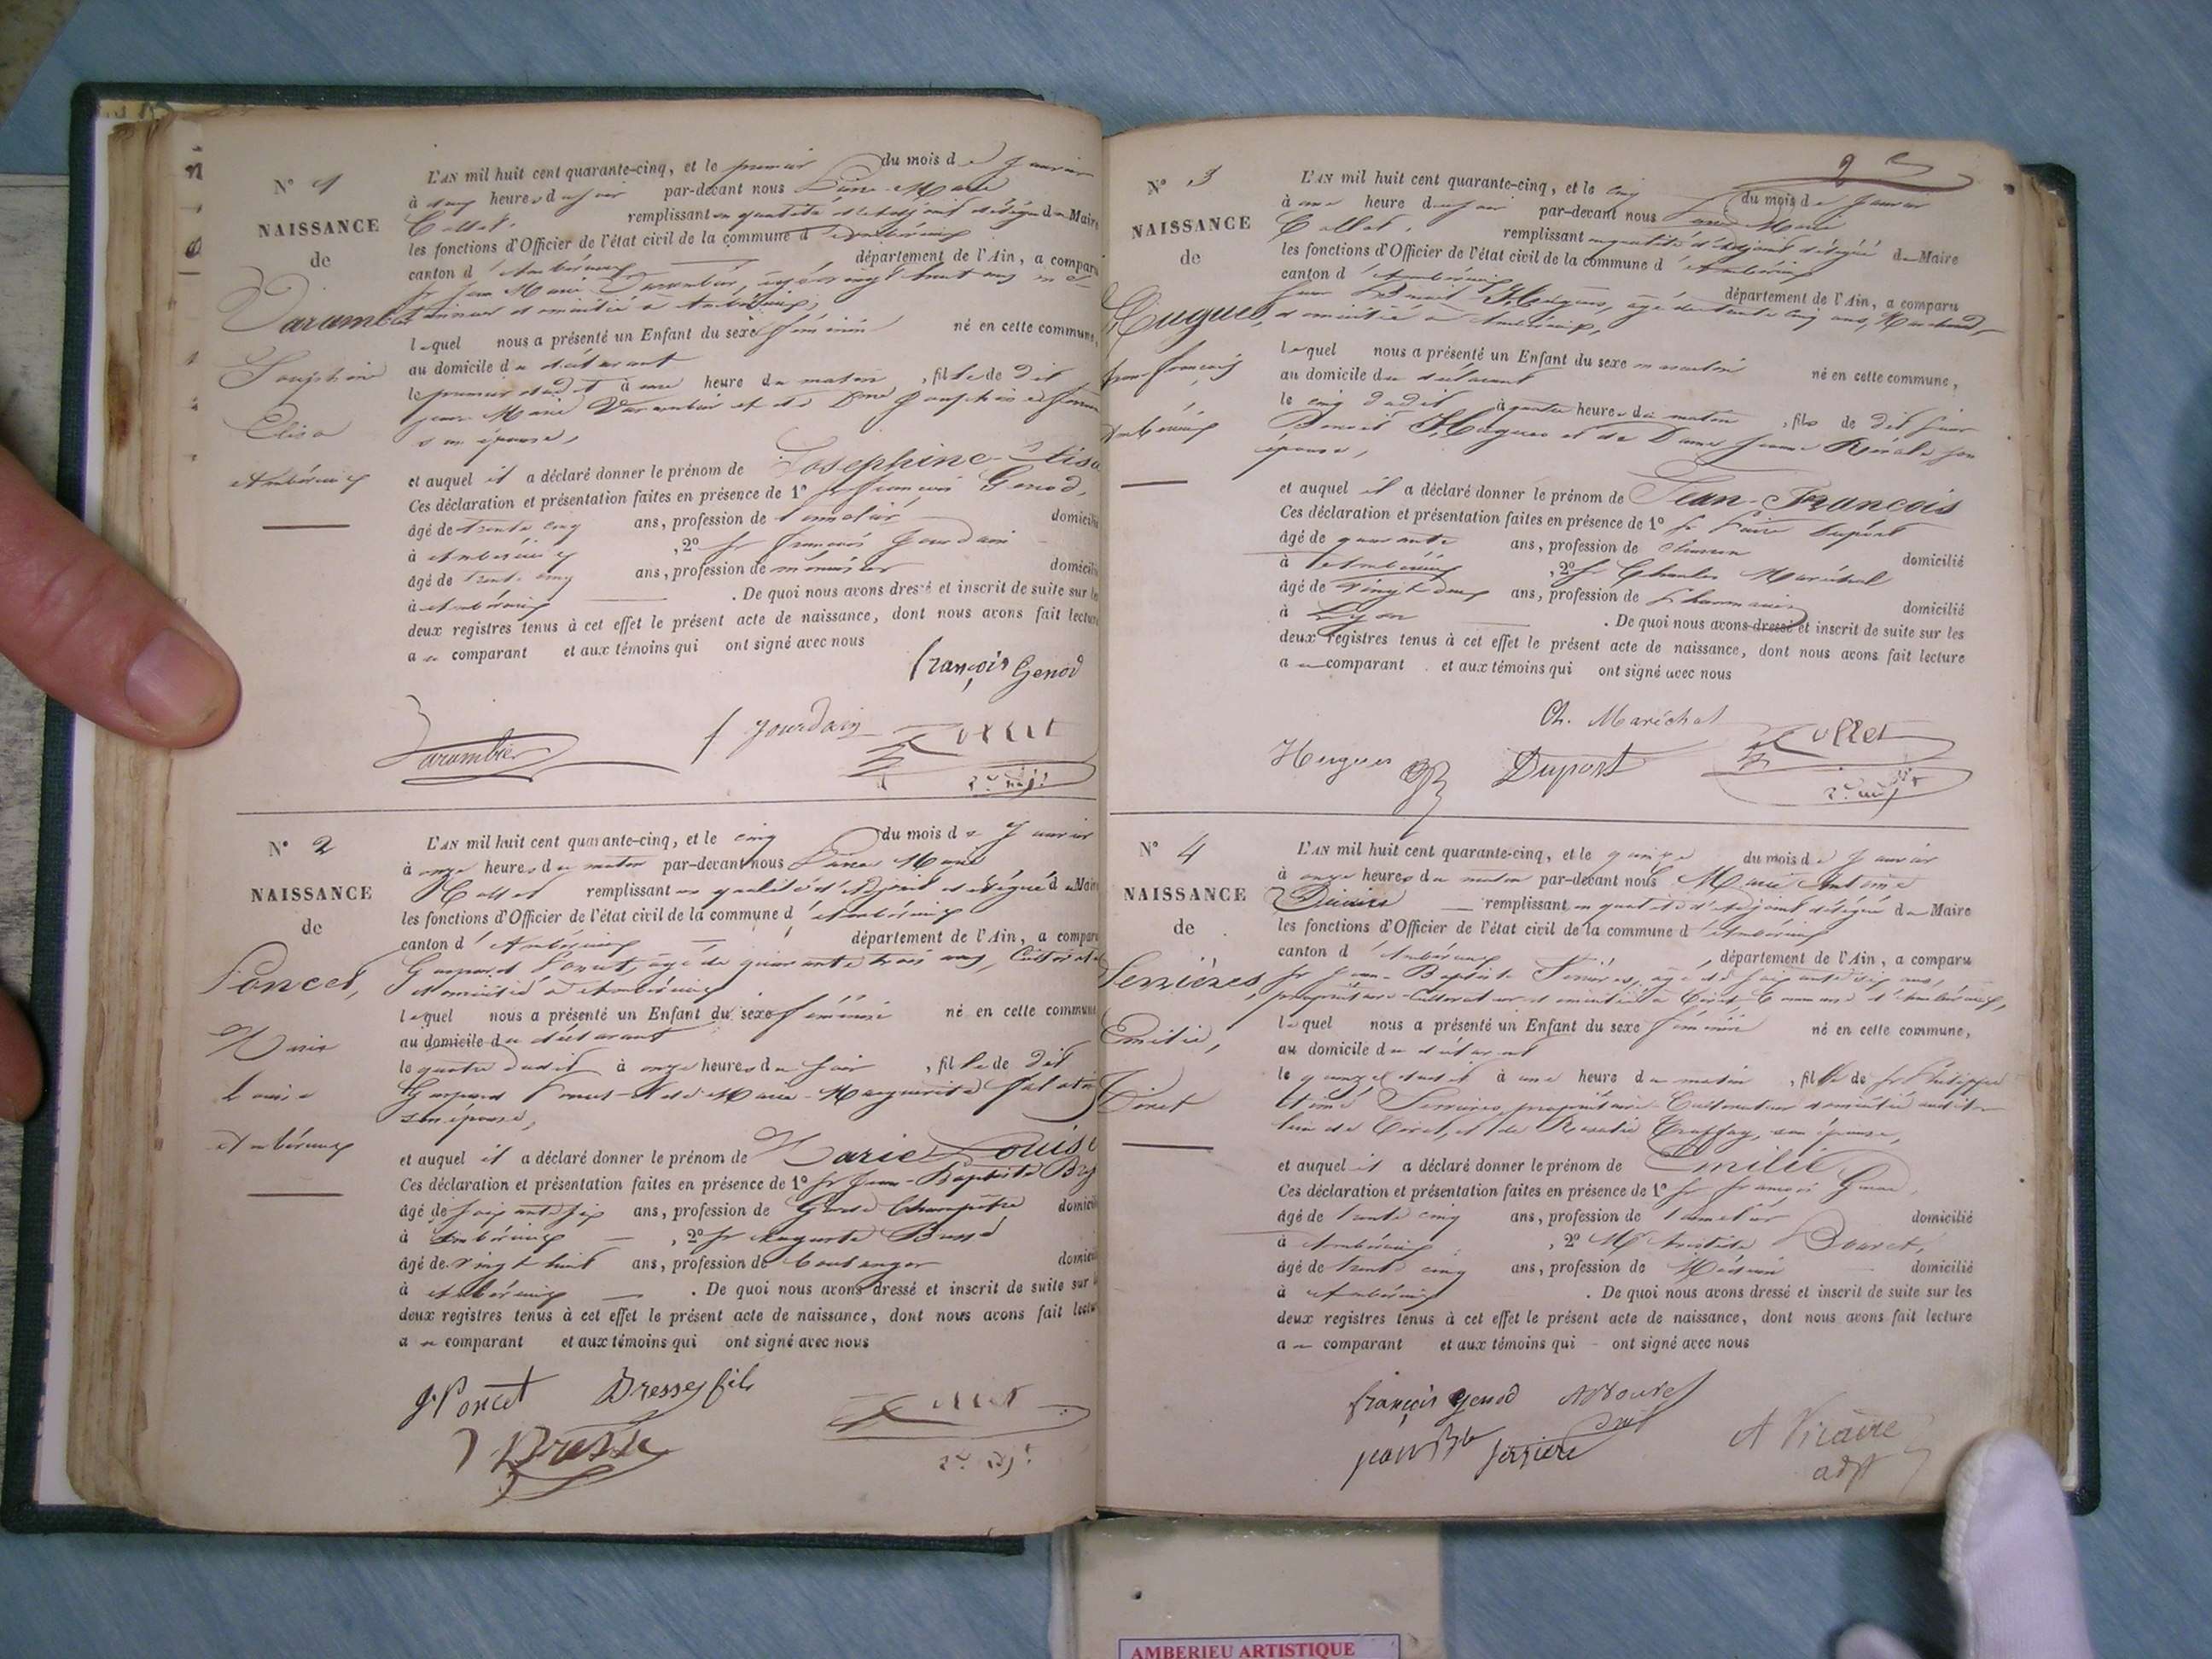 N° 1
NAISSANCE
de
Varambier
Joséphine
Elisa
Ambérieux
L'AN mil huit cent quarante-cinq, et le premier du mois de Janvier
à heures du soir par-devant nous Marie
Collet, remplissant en qualité d'adjoint délégué du Maire
les fonctions d'Officier de l'état civil de la commune d'Ambérieux
canton d'Ambérieux département de l'Ain, a comparu
sr Jean Marie Varambier, âgé de vingt huit ans
domicilié à Ambérieux,
lequel nous a présenté un Enfant du sexe féminin né en cette commune,
au domicile du déclarant
le premier dudit à une heure du matin, fille de dit
Jean Marie Varambier et de Dme Joséphine
son épouse,
et auquel il a déclaré donner le prénom de Josephine-Elisa
Ces déclaration et présentation faites en présence de 1° sr françois Genod,
âgé de trente cinq ans, profession de domicilié
à Ambérieux, 2° sr François Jourdain
âgé de trente cinq ans, profession de menuisier domicilié
à Ambérieux. De quoi nous avons dressé et inscrit de suite sur les
deux registres tenus à cet effet le présent acte de naissance, dont nous avons fait lecture
au comparant et aux témoins qui ont signé avec nous
françois Genod
Varambier
f Jourdain
Collet
2me adjt
N° 2
NAISSANCE
de
Poncet,
Marie
Louise
Ambérieux
L'AN mil huit cent quarante-cinq, et le cinq du mois de Janvier
à onze heures du matin par-devant nous Marie
Collet remplissant en qualité d'adjoint délégué du Maire
les fonctions d'Officier de l'état civil de la commune d'Ambérieux
canton d'Ambérieux département de l'Ain, a comparu
Gaspard Poncet, âgé de quarante trois ans, Cultivateur
domicilié à Ambérieux
lequel nous a présenté un Enfant du sexe féminin né en cette commune
au domicile du déclarant
le quatre dudit à onze heures du soir, fille de dit
Gaspard Poncet et de Marie-Marguerite
son épouse,
et auquel il a déclaré donner le prénom de Marie Louise
Ces déclaration et présentation faites en présence de 1° sr Jean-Baptiste
âgé de soixante six ans, profession de Garde Champêtre domicilié
à Ambérieux, 2° sr Auguste
âgé de vingt huit ans, profession de boulanger domicilié
à Ambérieux. De quoi nous avons dressé et inscrit de suite sur les
deux registres tenus à cet effet le présent acte de naissance, dont nous avons fait lecture
au comparant et aux témoins qui ont signé avec nous
g Poncet
Bressey fils
Collet
2me adjt
2
N° 3
NAISSANCE
de
Hugues,
Jean-François
Ambérieux
L'AN mil huit cent quarante-cinq, et le cinq du mois de Janvier
à une heure du soir par-devant nous Marie
Collet, remplissant en qualité d'adjoint délégué du Maire
les fonctions d'Officier de l'état civil de la commune d'Ambérieux
canton d'Ambérieux département de l'Ain, a comparu
Benoit Hugues, âgé de trente cinq ans, Marchand,
domicilié à Ambérieux,
lequel nous a présenté un Enfant du sexe masculin né en cette commune,
au domicile du déclarant
le cinq dudit à quatre heures du matin, fils de dit sieur
Benoit Hugues et de Dame son
épouse,
et auquel il a déclaré donner le prénom de Jean-François
Ces déclaration et présentation faites en présence de 1° sr Dupont
âgé de quarante ans, profession de domicilié
à Ambérieux, 2° sr Charles Maréchal
âgé de vingt deux ans, profession de Pharmacien domicilié
à Lyon. De quoi nous avons dressé et inscrit de suite sur les
deux registres tenus à cet effet le présent acte de naissance, dont nous avons fait lecture
au comparant et aux témoins qui ont signé avec nous
Ch. Maréchal
Hugues
Dupont
Collet
2me adjt
N° 4
NAISSANCE
de
Serrières,
Emilie,
Tiret
L'AN mil huit cent quarante-cinq, et le quinze du mois de Janvier
à onze heures du matin par-devant nous Marie Antoine
remplissant en qualité d'Adjoint délégué du Maire
les fonctions d'Officier de l'état civil de la commune d'Ambérieux
canton d'Ambérieux, département de l'Ain, a comparu
sr Jean-Baptiste Serrières, âgé de ans,
propriétaire-Cultivateur domicilié à Tiret, Commune d'Ambérieux,
lequel nous a présenté un Enfant du sexe féminin né en cette commune,
au domicile du déclarant
le quinze dudit à une heure du matin, fille de sr Philippe
Serrières, propriétaire-Cultivateur domicilié audit
lieu de Tiret, et de Rosalie son épouse,
et auquel il a déclaré donner le prénom de Emilie
Ces déclaration et présentation faites en présence de 1° sr françois Genod,
âgé de trente cinq ans, profession de domicilié
à Ambérieux, 2° Mr Aristide Bouvet,
âgé de trente cinq ans, profession de Médecin domicilié
à Ambérieux. De quoi nous avons dressé et inscrit de suite sur les
deux registres tenus à cet effet le présent acte de naissance, dont nous avons fait lecture
au comparant et aux témoins qui ont signé avec nous
françois genod
jean Bte serriere
A Vicaire
adjt
AMBERIEU ARTISTIQUE